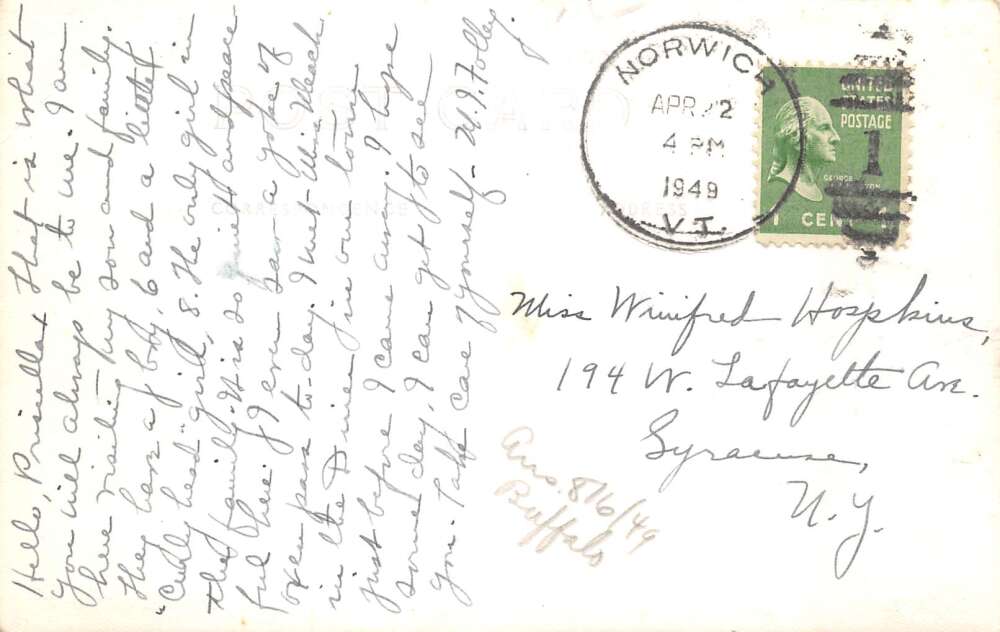 Hello, Priscilla! That is what
you will always be to me. I am
here visiting my son and family.
They have a boy, 6 and a little
"Curly head" girl, 8. The only girl in
the family. It is so quiet and peace
ful here. I even saw a yoke of
oxen pass to-day. I met Miss
in the Diner, in our town
just before I came away. I hope
some day, I can get to see
you. Take care of yourself—
POST CARD
CORRESPONDENCE
ADDRESS
NORWICH
APR 22
4 PM
1949
VT.
UNITED
STATES
POSTAGE
1
GEORGE
1 CENT
Miss Winifred Hospkins,
194 W. Lafayette Ave.
Syracuse,
N.Y.
Ans. 8/6/49
Buffalo